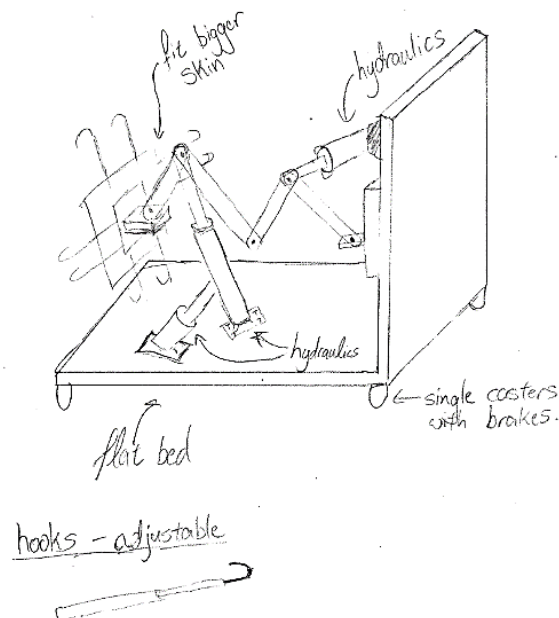 fit bigger
skin
hydraulics
hydraulics
single casters
with brakes.
flat bed
hooks - adjustable